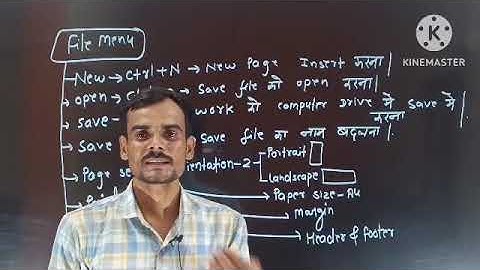 File Menu
KINEMASTER
New → Ctrl + N → New Page Insert करना |
open → C → Save file को open करना |
Save - work को computer drive में save में करना |
Save Save file का नाम बदलना |
Page se ientation - 2 Portrait
Landscape
Paper size - A4
Margin
Header & footer